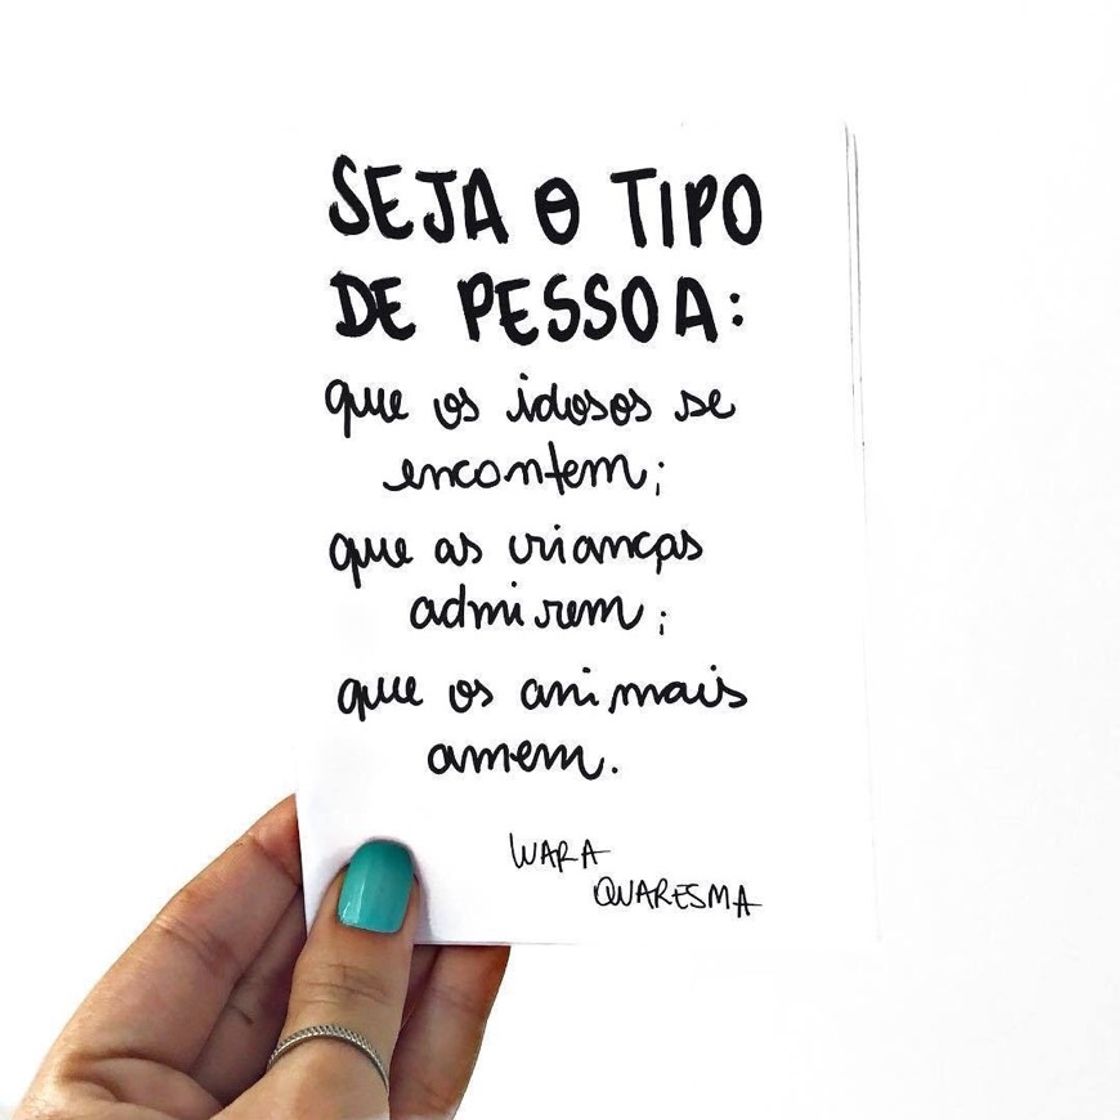 SEJA O TIPO
DE PESSOA:
que os idosos se
encontem;
que as crianças
admirem;
que os animais
amem.
WARA
QUARESMA